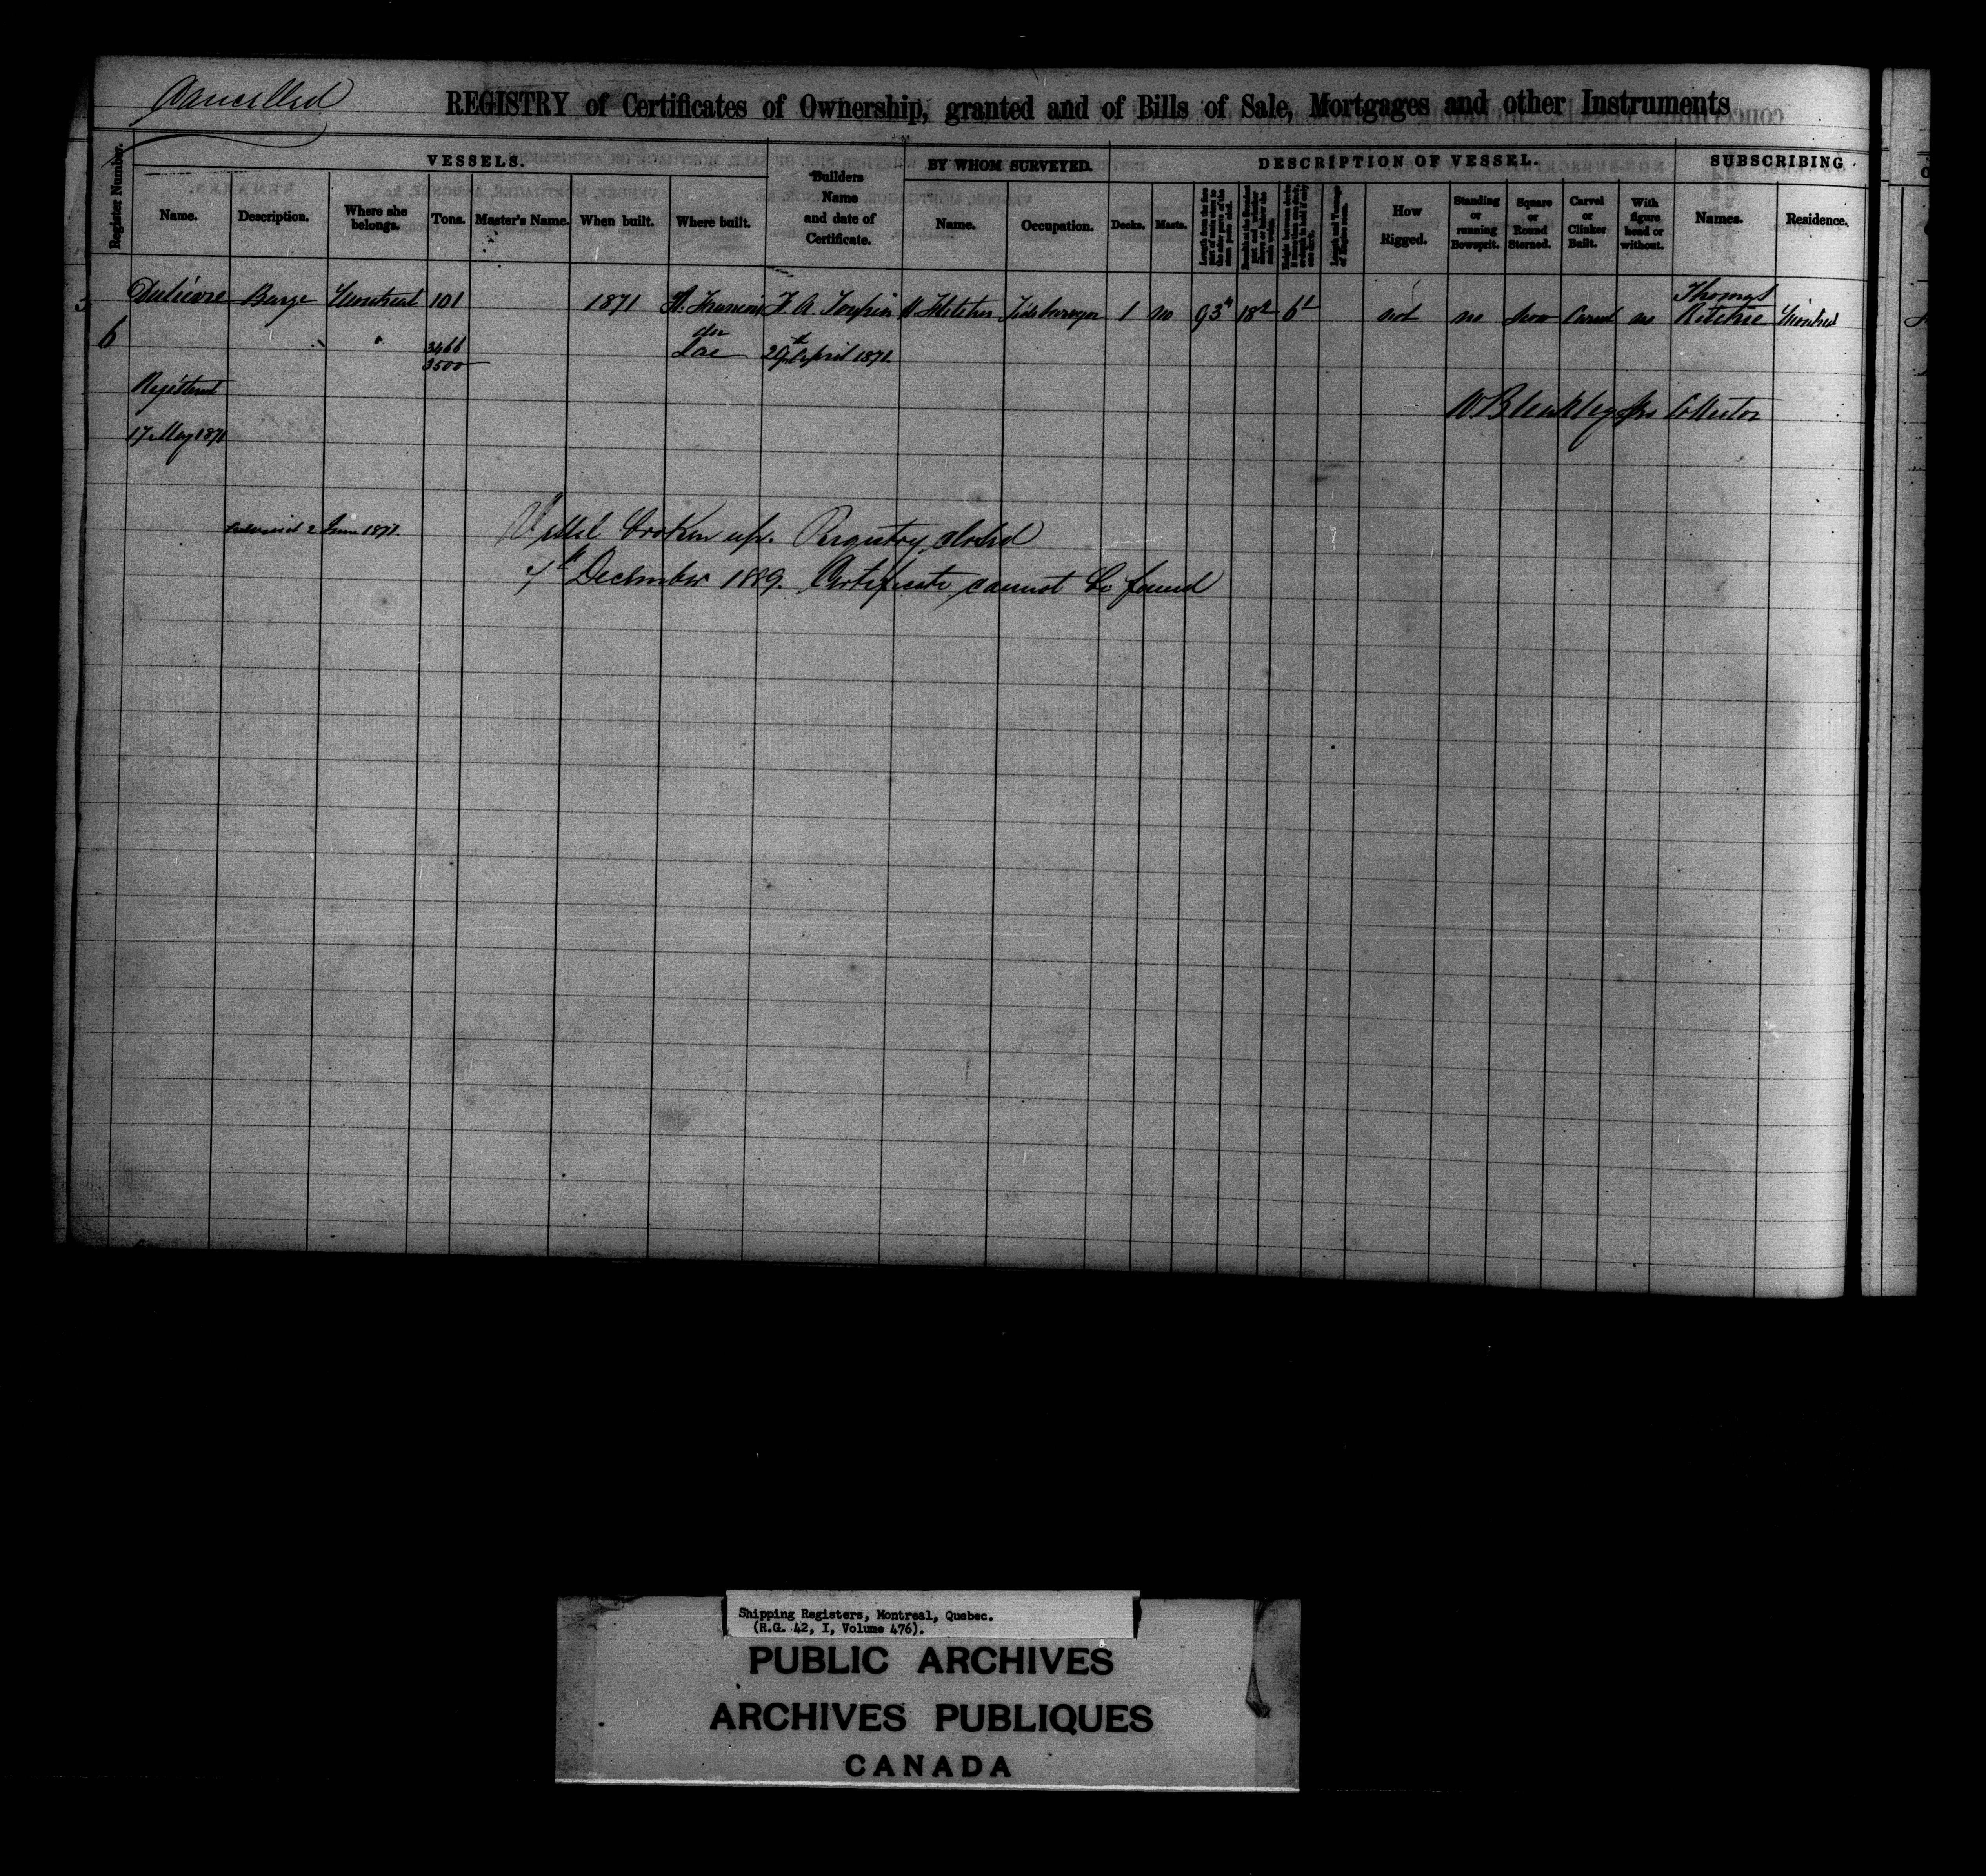 Cancelled
REGISTRY of Certificates of Ownership, granted and of Bills of Sale, Mortgages and other Instruments
Register Number.
VESSELS.
Name.
Description.
Where she belongs.
Tons.
Master's Name.
When built.
Where built.
Builders Name and date of Certificate.
BY WHOM SURVEYED.
Name.
Occupation.
DESCRIPTION OF VESSEL.
Decks.
Masts.
How Rigged.
Standing or running Bowsprit.
Square or Round Sterned.
Carvel or Clinker Built.
With figure head or without.
SUBSCRIBING
Names.
Residence.
6
Barge Montreal 101 1871 St. Francois
Fletcher Tide Surveyor 1 no 93 18 6 not no Carvel no Thomas Ritchie Montreal
3466
3500
du Lac
29th April 1871
Registered
17 May 1871
Collector
2 June 1871.
Vessel broken up. Registry closed
December 1889. Certificate cannot be found
Shipping Registers, Montreal, Quebec.
(R.G. 42, I, Volume 476).
PUBLIC ARCHIVES
ARCHIVES PUBLIQUES
CANADA